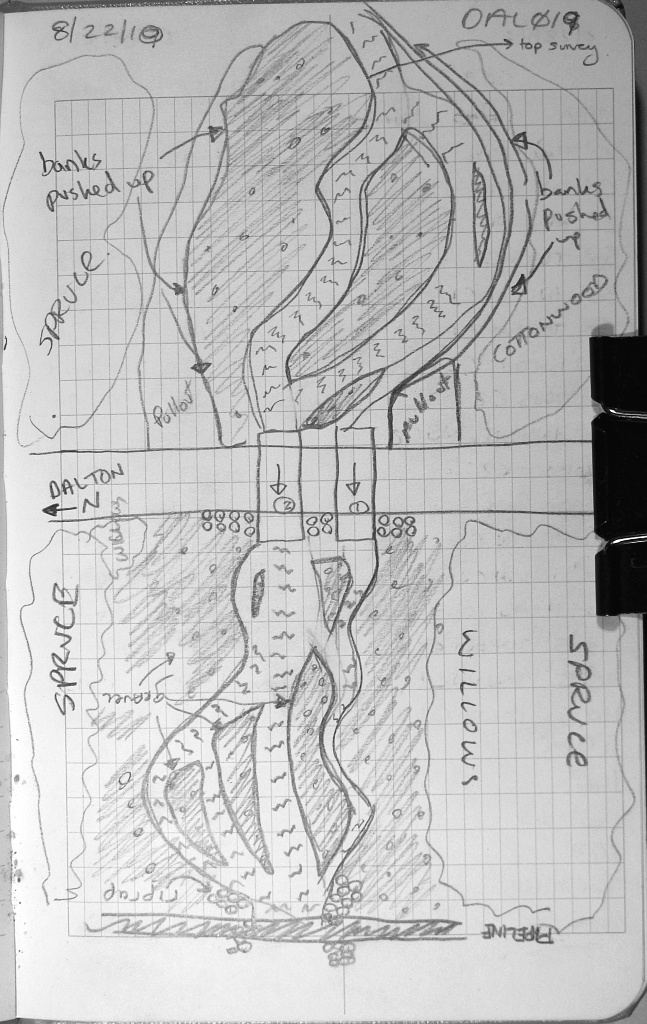 8/22/19
DAL019
top survey
banks
pushed up
banks
pushed
up
SPRUCE
COTTONWOOD
Pullout
pullout
DALTON
N
2
1
Willows
SPRUCE
GRAVEL
WILLOWS
SPRUCE
riprap
PIPELINE